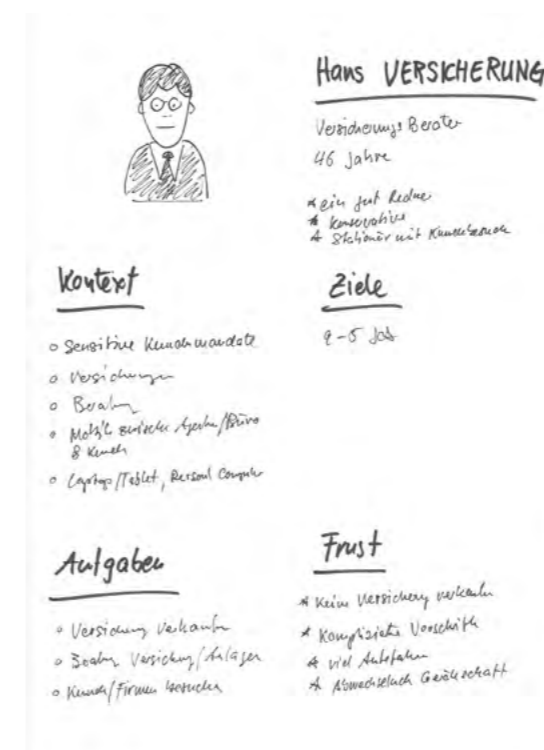 Hans VERSICHERUNG
Versicherungs Berater
46 Jahre
* ein gut Redner
* Konservative
* Stationär mit Kundenbesuch
Kontext
o Sensitive Kundenmandate
o Versicherungen
o Beratung
o Mobil zwischen /Büro
& Kunden
o Laptop/Tablet, Personal Computer
Ziele
9-5 Job
Aufgaben
o Versicherung Verkaufen
o Versicherung/Anlagen
o Kunden/Firmen besuchen
Frust
* Keine Versicherung verkaufen
* Komplizierte Vorschriften
* viel Autofahren